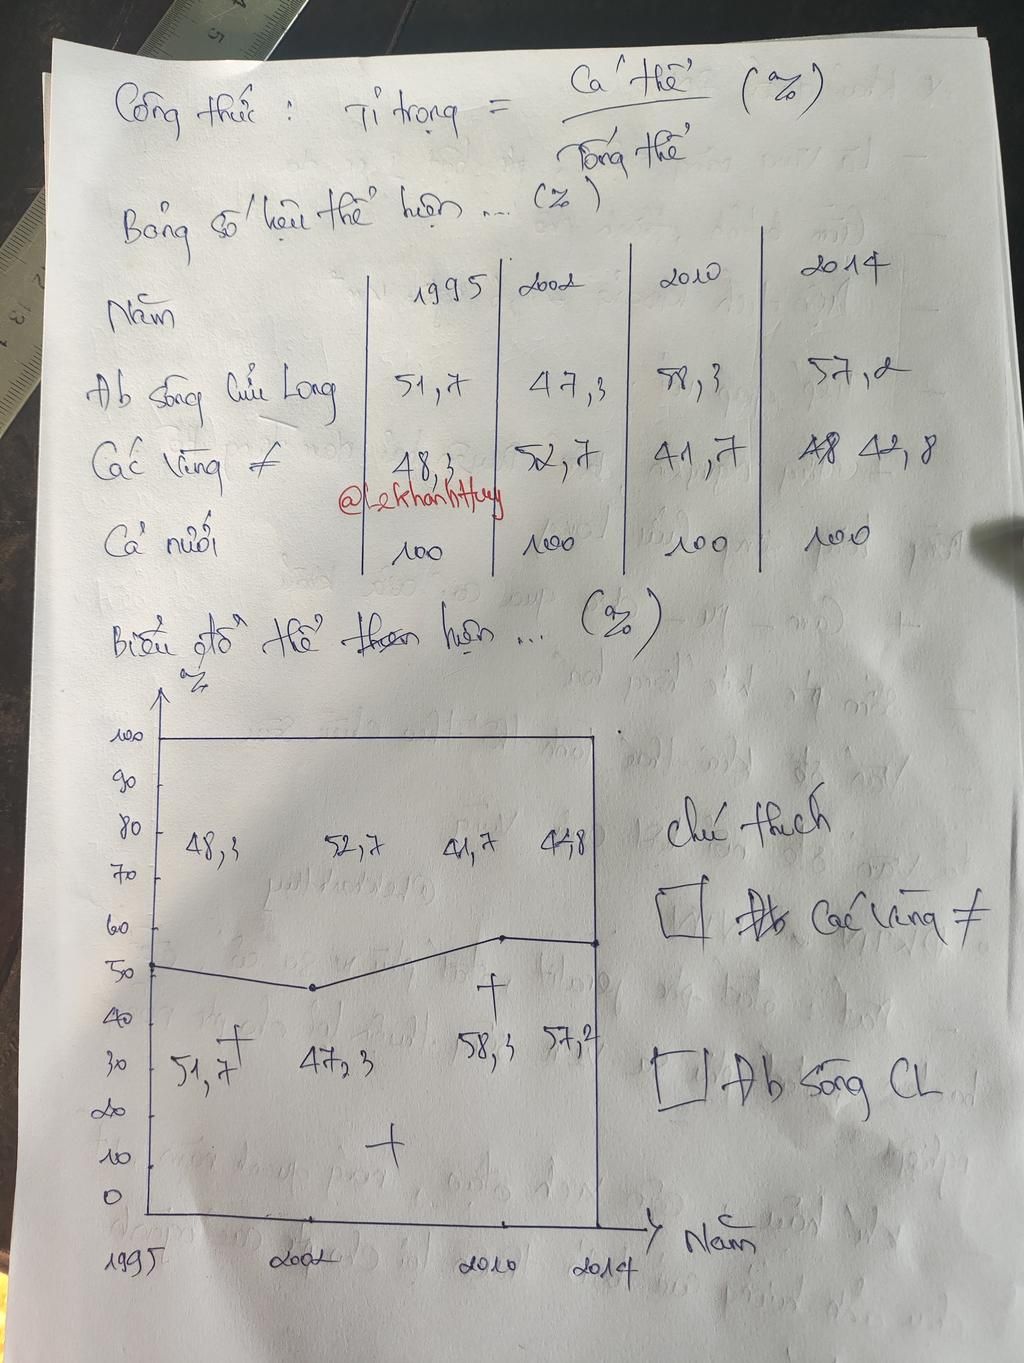 Công thức : Tỉ trọng = Cá thể / Tổng thể (%)
Bảng số liệu thể hiện ... (%)
Năm 1995 2002 2010 2014
Đb sông Cửu Long 51,7 47,3 58,3 57,2
Các vùng ≠ 48,3 52,7 41,7 48 42,8
@LeKhanhHuy
Cả nước 100 100 100 100
Biểu đồ thể hiện ... (%)
%
100
90
80
48,3 52,7 41,7 42,8
70
60
50
40
30
51,7 47,3 58,3 57,2
20
10
0
1995 2002 2010 2014
Năm
Chú thích
Đb Các vùng ≠
Đb sông CL